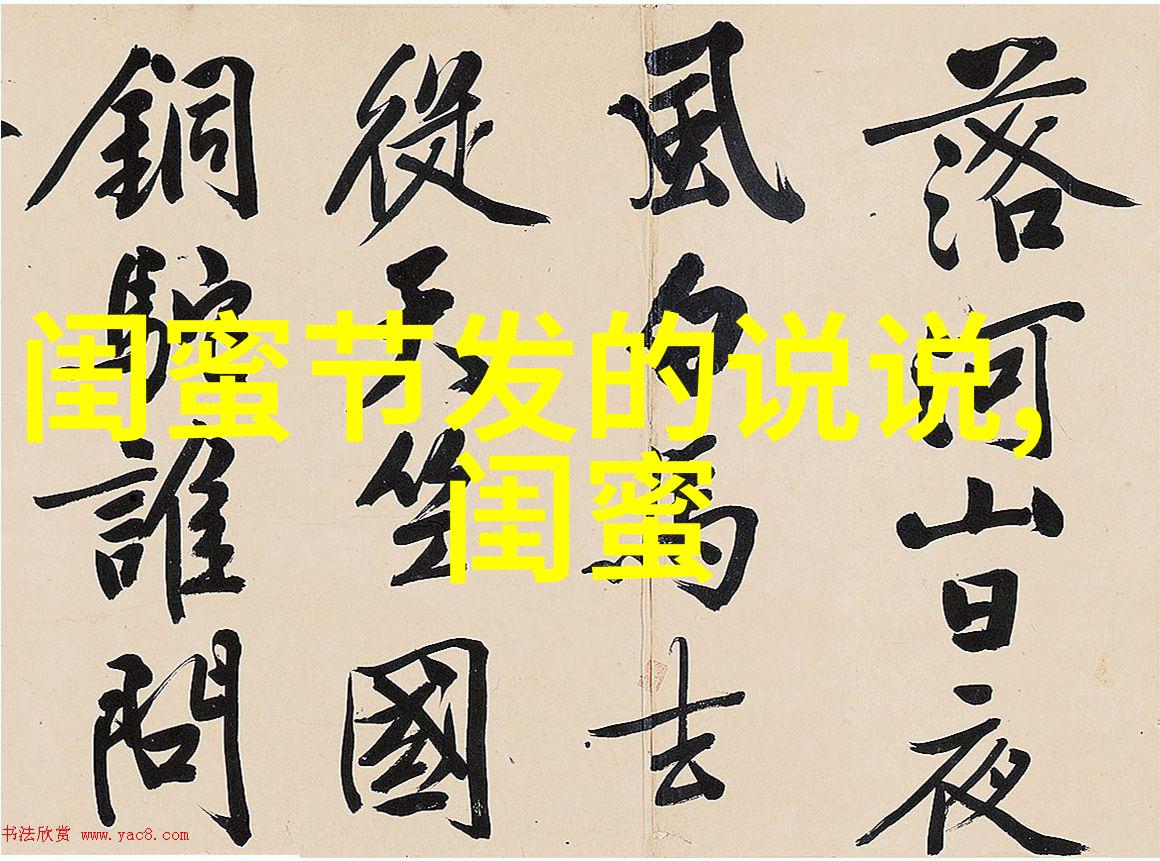 落河山日夜
風白馬去
從天竺國
銅駝誰問
闺蜜节发的说说,
闺蜜
书法欣赏 www.yac8.com